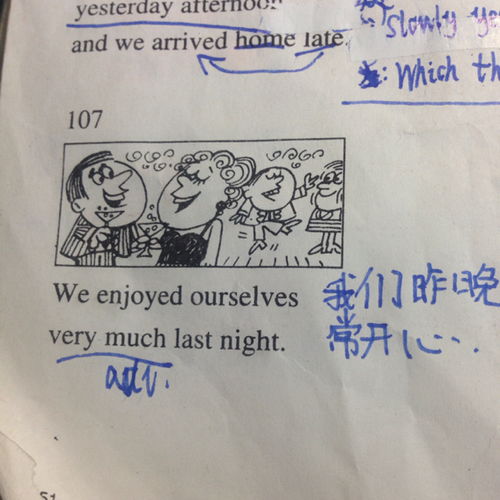 yesterday afternoon
and we arrived home late.
slowly
Which th
107
We enjoyed ourselves
very much last night.
adv.
我们昨晚
常开心..
51